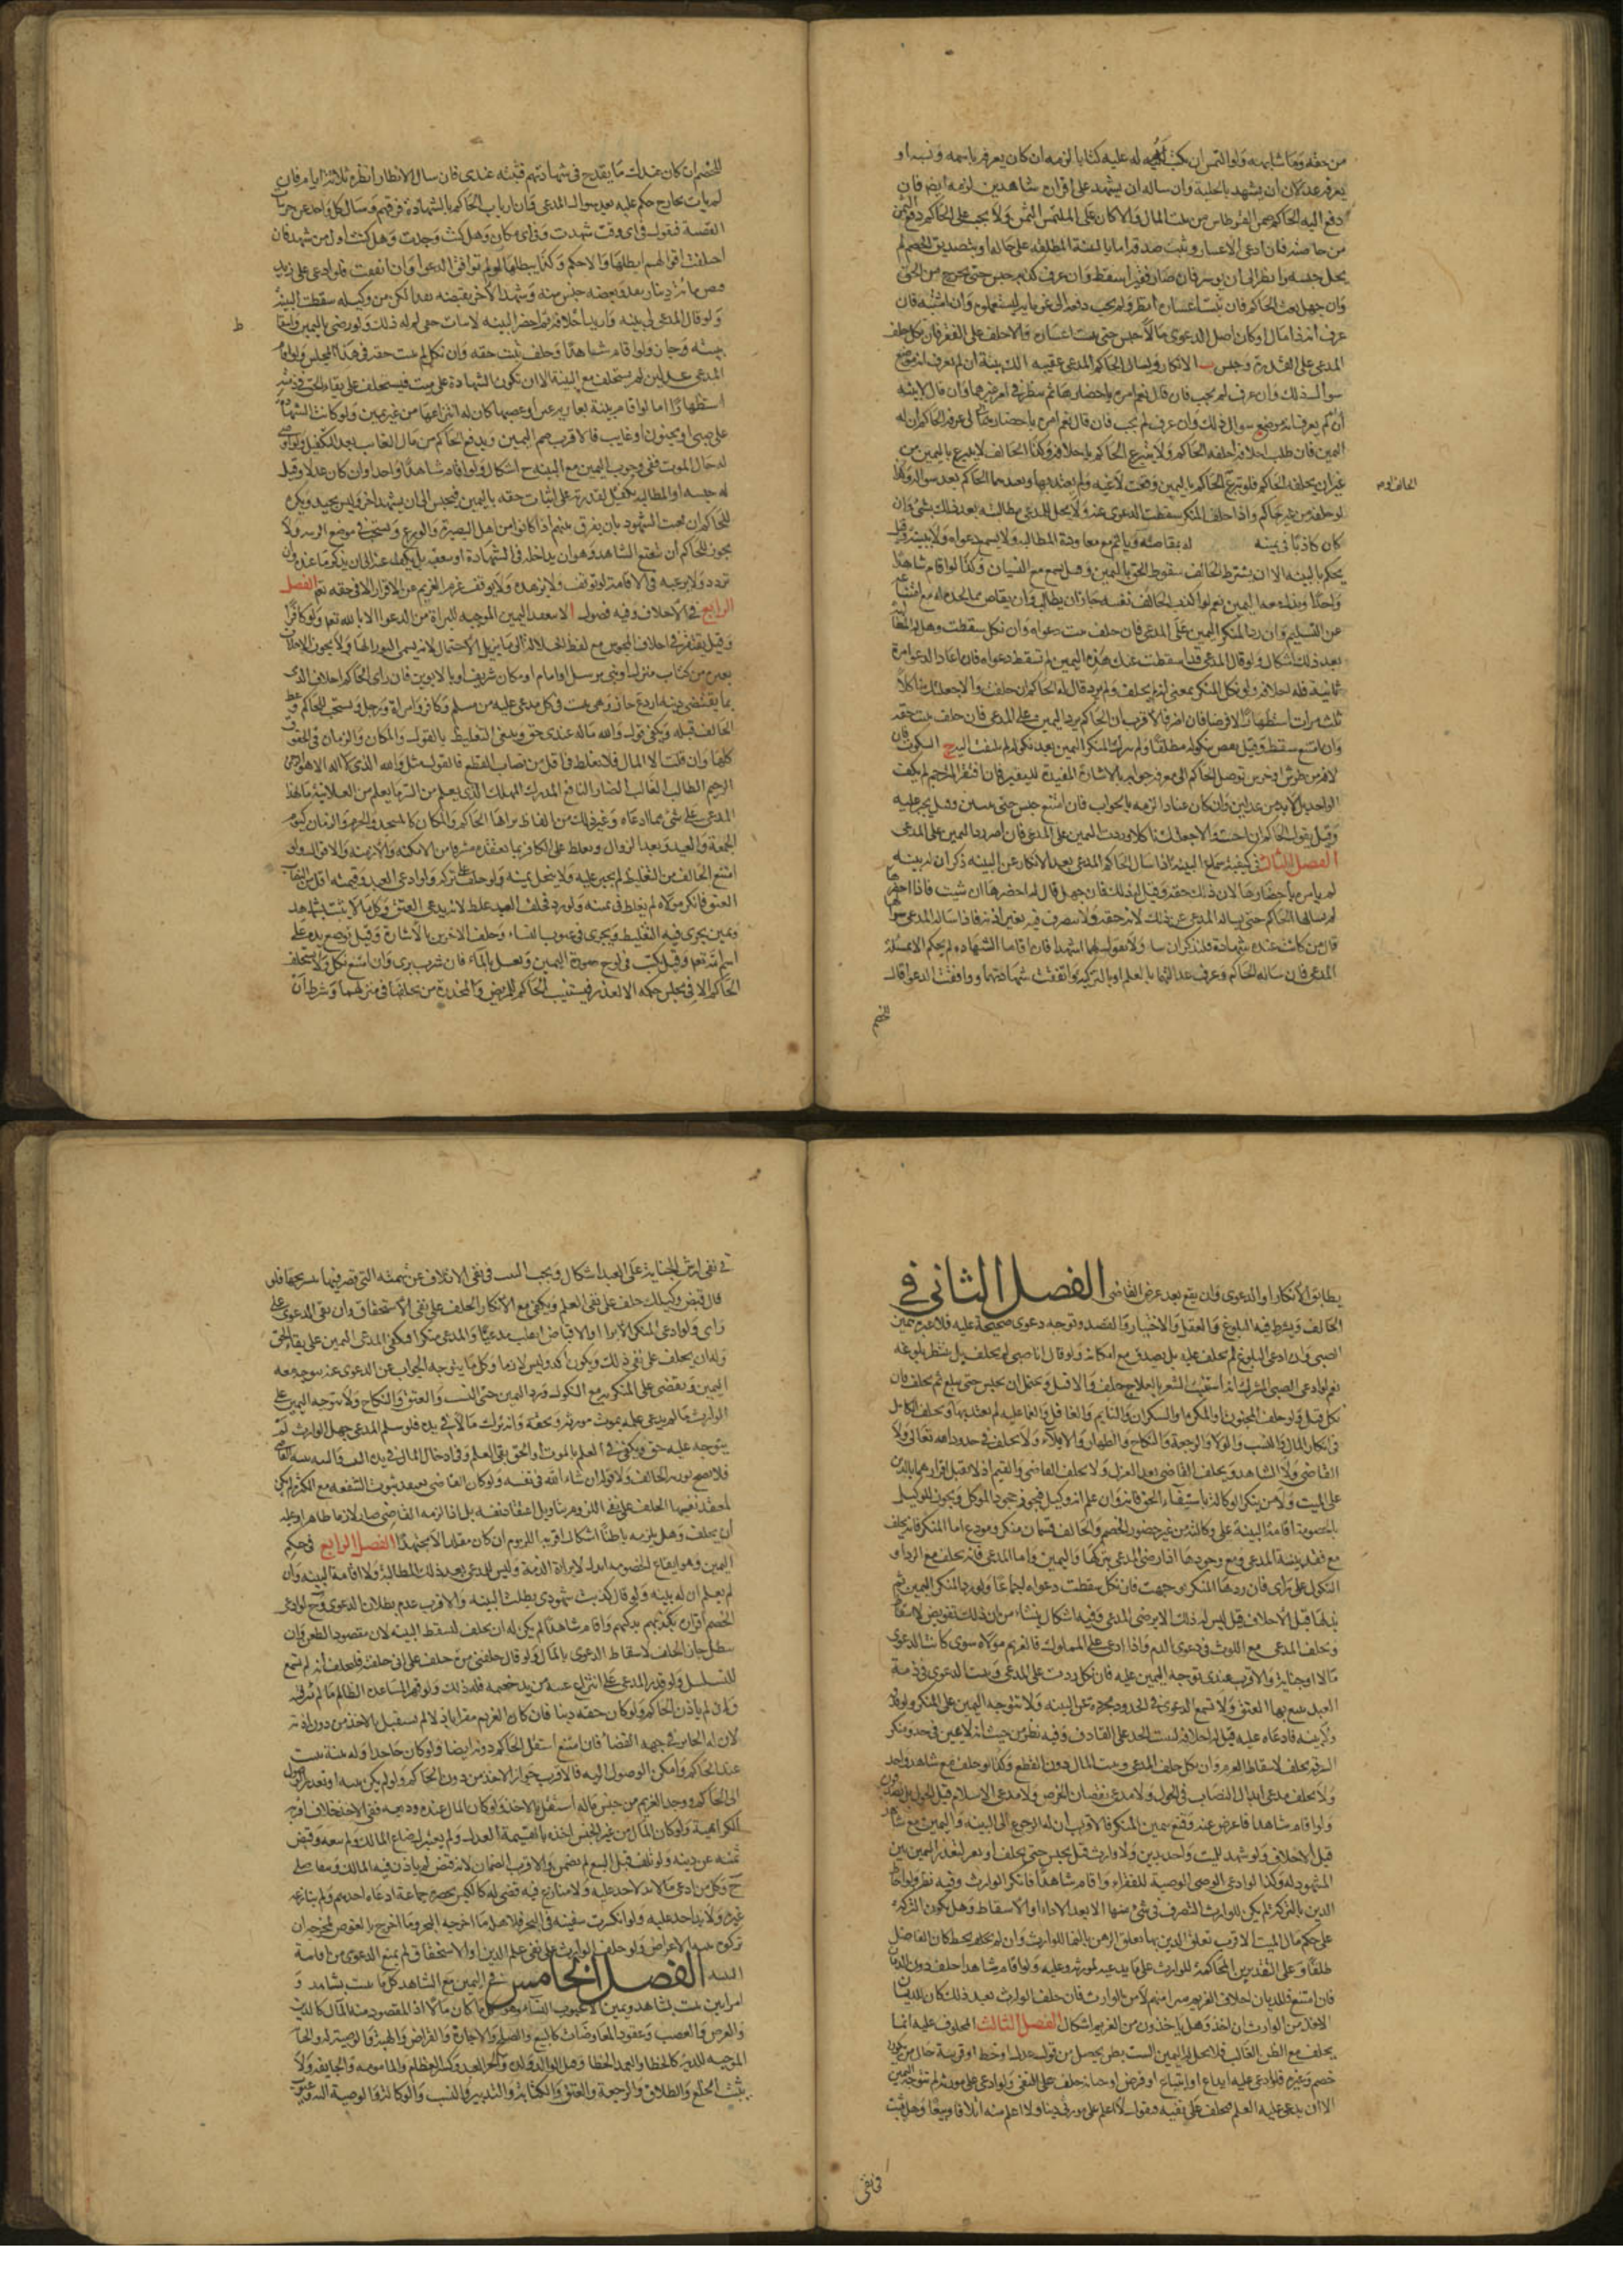 من حقه ومما شابهه ولو التمس ان يكتب له عليه كتابا لزمه ان كان يعرفه باسمه ونسبه او
يعرفه عدلان او يشهد بالحلية وان ساله ان يشهد على اقراره شاهدين لزمه ايضا فان
دفع اليه الحاكم ثمن القرطاس من بيت المال والا كان على الملتمس الثمن ولا يجب على الحاكم دفع الثمن
من خاصته فان ادعى الاعسار وثبت صدقه اما بالبينة المطلعة على حاله او بتصديق الخصم لم
يحل حبسه وانظر الى ان يوسر فان صار فقيرا سقط وان عرف كذبه حبس حتى يخرج من الحق
وان جهل بحث الحاكم فان ثبت اعساره انظر ولم يجب دفعه الى غرمائه ليستعملوه وان اشتبه فان
عرف انه ذا مال او كان اصل الدعوى مالا حبس حتى يثبت اعساره والا حلف على الفقر فان نكل حلف
المدعي على القدرة وحبس ب الانكار ويسال الحاكم المدعي عقيبه الك بينة ان لم يعرف انه موضع
سوال ذلك وان عرف لم يجب فان قال نعم امره باحضارها ثم نظر في امر غيرهما وان قال لا بينة
اليمين فان طلب احلافه احلفه الحاكم ولا يتبرع الحاكم باحلافه وكذا الحالف لا يتبرع باليمين من
غير ان يحلفه الحاكم فلو تبرع الحاكم باليمين وقعت لاغية ولم يعتد بها ويعيدها الحاكم بعد سواله وكذا
لو حلفه من غير حاكم واذا حلف المنكر سقطت الدعوى عنه ولا يحل للمدعي مطالبته بعد ذلك بشئ وان
كان كاذبا في يمينه له مقاصته ويأثم مع معاودة المطالبة ولا يسمع دعواه ولا بينته وقيل
يحكم بالبينة الا ان يشترط الحالف سقوط الحق باليمين وهل يسمع مع النسيان وكذا لو اقام شاهدا
واحدا وبذل معه اليمين نعم لو اكذب الحالف نفسه جاز ان يطالب وان يقاص مما يجده له مع امتناعه
عن التسليم وان رد المنكر اليمين على المدعي فان حلف ثبت دعواه وان نكل سقطت وهل له المطالبة
بعد ذلك اشكال ولو قال المدعي قد اسقطت عنك هذه اليمين لم تسقط دعواه فان اعاد الدعوى مرة
ثانية فله احلافه ولو نكل المنكر بمعنى انه لم يحلف ولم يرد قال له الحاكم ان حلفت والا جعلتك ناكلا
ثلث مرات استظهارا لا فرضا فان اصر فالاقرب ان الحاكم يرد اليمين على المدعي فان حلف ثبت حقه
وان امتنع سقط وقيل يقضى بنكوله مطلقا ولو بذل المنكر اليمين بعد نكوله لم يلتفت اليه ج السكوت فان
كان لافة من طرش او خرس توصل الحاكم الى معرفة جوابه بالاشارة المفيدة لليقين فان افتقر الى مترجم لم يكف
الواحد بل لا بد من عدلين وان كان عنادا الزمه بالجواب فان امتنع حبس حتى يبين وقيل يجبر عليه
وقيل يقول الحاكم ان اجبت والا جعلتك ناكلا ورددت اليمين على المدعي فان اصر رد اليمين على المدعي
الفصل الثالث في كيفية سماع البينة اذا سال الحاكم المدعي بعد الانكار عن البينة ذكر ان له بينة
لم يامره باحضارها لان ذلك حقه وقيل له ذلك فان جهل قال له احضرها ان شئت فاذا احضرها
لم يسالها الحاكم حتى يساله المدعي عن ذلك لانه حقه ولا يتصرف فيه بغير اذنه فاذا ساله المدعي سوالها
قال من كانت عنده شهادة فليذكر ان شاء ولا يقول لهما اشهدا فان اقاما الشهادة لم يحكم الا بمسئلة
المدعي فان ساله الحاكم وعرف عدالتهما بالعلم او بالتزكية واتفقت شهادتهما ووافقت الدعوى قال
للخصم
للخصم ان كان عندك ما يقدح في شهادتهم فبينه عندي فان سال الانظار انظره ثلاثة ايام فان
لم يات بجارح حكم عليه بعد سوال المدعي وان ارتاب الحاكم بالشهادة فرقهم وسال كل واحد عن جزئيات
القصة فيقول في اي وقت شهدت وفي اي مكان وهل كنت وحدك وهل كنت اول من شهد فان
اختلفت اقوالهم ابطلها والا حكم وكذا يبطلها لو لم توافق الدعوى وان اتفقت فلو ادعى على زيد
قبض مائة دينار نقدا وبعضه جنس منه وشهد الاخر بقبضه نقدا لكن من وكيله سقطت البينة
المدعي عدلين لم يستحلف مع البينة الا ان تكون الشهادة على ميت فيستحلف على بقاء الحق في ذمته
استظهارا اما لو اقام بينة بعارية عين او غصبها كان له انتزاعها من غير يمين ولو كانت الشهادة
على صبي او مجنون او غايب فالاقرب ضم اليمين ويدفع الحاكم من مال الغايب بعد التكفيل ولو اوصى
له حال الموت ففي وجوب اليمين مع البينة ح اشكال ولو اقام شاهدا واحدا وان كان عدلا وقيل
له حبسه او المطالبة بكفيل لقدرته على اثبات حقه باليمين فيحبس الى ان يشهد اخر وليس بجيد ويكره
للحاكم ان يعنت الشهود بان يفرق بينهم اذا كانوا من اهل البصيرة والورع ويستحب في موضع الريبة ولا
يجوز للحاكم ان يتعتع الشاهد وهو ان يداخله في الشهادة او يتعقبه بل يكف عنه الى ان يذكر ما عنده وان
تردد ولا يرغبه في الاقامة لو توقف ولا يزهده ولا يوقف غرم الغريم عن الاقرار الا في حقه تع الفصل
الرابع في الاحلاف وفيه فصول ا لا ينعقد اليمين الموجبة للبراة من الدعوى الا بالله تعالى ولو كافرا
وقيل يفتقر في احلاف المجوس مع لفظ الجلالة الى ما يزيل الاحتمال لانه يسمى النور الها ولا يجوز الاحلاف
بغيره من كتاب منزل او نبي مرسل او امام او مكان شريف او بالابوين فان راى الحاكم احلاف الذمي
بما يقتضي دينه اردع جاز وهي يثبت في كل مدعى عليه من مسلم وكافر وامراة ورجل ويستحب للحاكم وعظ
الحالف قبله ويكفي قول والله ماله عندي حق وينبغي التغليظ بالقول والمكان والزمان في الحقوق
كلها وان قلت الا المال فلا يغلظ فيه اقل من نصاب القطع فالقول مثل والله الذي لا اله الا هو الرحمن
الرحيم الطالب الغالب الضار النافع المدرك المهلك الذي يعلم من السر ما يعلم من العلانية ما لهذا
المدعي على شئ مما ادعاه وغير ذلك من الفاظ يراها الحاكم والمكان كالمسجد والحرم والزمان كيوم
الجمعة والعيد وبعد الزوال ويغلظ على الكافر بما يعتقده مشرفا من الامكنة والازمنة والاقوال ولو
امتنع الحالف من التغليظ لم يجبر عليه ولا ينحل يمينه ولو حلف على تركه ولو ادعى العبد وقيمته اقل من النصاب
العتق فانكر مولاه لم يغلظ في يمينه ولو رد فحلف العبد غلظ لانه يدعي العتق وكل ما لا يثبت بشاهد
ويمين يجري فيه التغليظ ويجري في عيوب النساء وحلف الاخرس بالاشارة وقيل توضع يده على
اسم الله تعالى وقيل يكتب في لوح صورة اليمين ويغسل بالماء فان شرب برئ وان امتنع نكل ولا يستحلف
الحاكم الا في مجلس حكمه الا لعذر فيستنيب الحاكم للمريض والمخدرة من يحلفهما في منزلهما وشرطه ان
يطابق الانكار او الدعوى وان يقع بعد عرض القاضي الفصل الثاني في
الحالف ويشترط فيه البلوغ والعقل والاختيار والقصد وتوجه دعوى صحيحة عليه فلا عبرة بيمين
الصبي وان ادعى البلوغ لم يحلف عليه بل يصدق مع امكانه ولو قال انا صبي لم يحلف بل ينتظر بلوغه
نعم لو ادعى الصبي المشرك انه استنبت الشعر بالعلاج حلف والا قتل ويحتمل ان يحبس حتى يبلغ ثم يحلف فان
نكل قتل ولو حلف المجنون او المكره او السكران والنايم والغافل والمغمى عليه لم يعتد بها ويحلف الكامل
في انكار المال والنسب والولاء والرجعة والنكاح والظهار والايلاء ولا يحلف في حدود الله تعالى ولا
القاضي ولا الشاهد ويحلف القاضي بعد العزل ولا يحلف الوصي والقيم اذ لا يقبل اقرارهما بالدين
على الميت ولا من ينكر الوكالة باستيفاء الحق فانه وان علم انه وكيل فيجوز جحود الموكل ويجوز للوكيل
بالخصومة اقامة البينة على وكالته من غير حضور الخصم والحالف قسمان منكر ومدع اما المنكر فانه يحلف
مع فقد بينة المدعي ومع وجودها اذا رضي المدعي بتركها واليمين واما المدعي فانه يحلف مع الرد او
النكول على راى فان ردها المنكر توجهت فان نكل سقطت دعواه اجماعا ولو رد المنكر اليمين ثم
بذلها قبل الاحلاف قيل ليس له ذلك الا برضى المدعي وفيه اشكال ينشأ من ان ذلك تفويض لا اسقاط
ويحلف المدعي مع اللوث في دعوى الدم واذا ادعى على المملوك فالغريم مولاه سوى كانت الدعوى
مالا او جناية والاقرب عندي توجه اليمين عليه فان نكل ردت على المدعي وثبت الدعوى في ذمة
العبد يتبع بها العتق ولا تسمع الدعوى في الحدود مجردة عن البينة ولا تتوجه اليمين على المنكر ولو قذفه
ولا بينة فادعاه عليه قيل له احلافه ليثبت الحد على القاذف وفيه نظر من حيث انه لا يمين في حد ومنكر
السرقة يحلف لاسقاط الغرم وان نكل حلف المدعي ويثبت المال دون القطع وكذا لو حلف مع شاهد واحد
ولا يحلف مدعي ابدال النصاب في الحول ولا مدعي نقصان الخرص ولا مدعي الاسلام قبل الحول
ولو اقام شاهدا فاعرض عنه وقنع بيمين المنكر فالاقرب ان له الرجوع الى البينة واليمين مع شاهد
قبل الاحلاف ولو شهد للميت واحد بدين ولا وارث قيل يحبس حتى يحلف او يقر لتعذر اليمين من
المشهود له وكذا لو ادعى الوصي الوصية للفقراء واقام شاهدا فانكر الوارث وفيه نظر ولو احاط
الدين بالتركة لم يكن للوارث التصرف في شئ منها الا بعد الاداء او الاسقاط وهل يكون التركة
على حكم مال الميت الاقرب تعلق الدين بها تعلق الرهن بالنماء للوارث وان لم يحط كان الفاضل
طلقا وعلى التقديرين المحاكمة للوارث على ما يدعيه لمورثه وعليه ولو اقام شاهدا حلف دون الديان
فان امتنع فللديان احلاف الغريم فيبرا منهم لا من الوارث فان حلف الوارث بعد ذلك كان للديان
الاخذ من الوارث ان اخذ وهل ياخذون من الغريم اشكال الفصل الثالث المحلوف عليه انما
يحلف مع الظن الغالب فلا يحل له اليمين البت بظن يحصل من قول عدل او خط او قرينة حال من نكول
خصم وغيره فلو ادعى عليه ابتياع او قرض او جناية حلف على النفي ولو ادعى على مورثه لم تتوجه اليمين
الا ان يدعي عليه العلم فيحلف على نفيه فيقول لا اعلم على مورثي دينا ولا اعلم منه اتلافا وبيعا وهل يثبت
في نفي
في نفي ارش الجناية على العبد اشكال ويجب البت في نفي الاتلاف عن بهيمته التي قصر فيها بتسريحها فلو
قال قبض وكيلك حلف على نفي العلم ويكفي مع الانكار الحلف على نفي الاستحقاق وان نفى الدعوى على
راى ولو ادعى المنكر الابرا او الاقباض انقلب مدعيا والمدعي منكرا فيكفي المدعي اليمين على بقاء الحق
وله ان يحلف على نفي ذلك ويكون اكد وليس لازما وكل ما يتوجه الجواب عن الدعوى عنه يتوجه معه
اليمين ويقضى على المنكر به مع النكول ورد اليمين حتى النسب والعتق والنكاح ولا يتوجه اليمين على
الوارث ما لم يدعي علمه بموت مورثه وبحقه وانه ترك مالا في يده فلو سلم المدعي جهل الوارث لم
يتوجه عليه حق ويكفي في العلم بالموت او الحق نفي العلم وفي ادخال المال في يده البت والنية نية القاضي
فلا يصح تورية الحالف ولا قوله ان شاء الله في نفسه ولو كان القاضي يعتقد ثبوت الشفعة مع الكثرة لم يكن
ان يحلف وهل يلزمه باطنا اشكال اقربه اللزوم ان كان مقلدا لا مجتهدا الفصل الرابع في حكم
اليمين وهو ايقاع الخصومة ابدا لا براءة الذمة وليس للمدعي بعد ذلك المطالبة ولا اقامة البينة وان
لم يعلم ان له بينة ولو قال كذبت شهودي بطلت البينة والاقرب عدم بطلان الدعوى وح لو ادعى
الخصم اقراره بكذبهم بيدكهم واقام شاهدا لم يكن له ان يحلف لتسقط البينة لان مقصوده الطعن وان
يبطل جاز الحلف لاسقاط الدعوى بالمال ولو قال حلفني مرة حلف على اني حلفته فليحلف انه لم يسمع
للتسلسل ولو قدر المدعي على انتزاع عينه من يد خصمه فله ذلك ولو قهرا بمساعدة الظالم ما لم يثر فتنة
وان لم ياذن الحاكم ولو كان حقه دينا فان كان الغريم مقرا باذلا لم يستقل بالاخذ من دون اذنه
لان له الخيار في جهة القضاء فان امتنع استقل الحاكم دونه ايضا ولو كان جاحدا وله بينة يثبت
عند الحاكم وامكن الوصول اليه فالاقرب جواز الاخذ من دون الحاكم ولو لم يكن بينة او تعذر الوصول
الى الحاكم ووجد الغريم من جنس ماله استقل بالاخذ ولو كان المال عنده وديعة ففي الاخذ خلاف اقربه
الكراهية ولو كان المال من غير الجنس اخذه بالقيمة العدل ولم يعتبر رضاء المالك وله بيعه وقبض
ثمنه عن دينه ولو تلف قبل البيع لم يضمن والاقرب الضمان لانه قبض لم ياذن فيه المالك ويتقاصان
ح وكل من ادعى مالا لا يد لاحد عليه ولا منازع فيه قضي له كالكيس يحضره جماعة ادعاه احدهم ولم ينازعه
غيره ولا يد لاحد عليه ولو انكسرت سفينة في البحر فلاهله ما اخرجه البحر وما اخرج بالغوص لمخرجه ان
تركوه بنية الاعراض ولو حلف الوارث على نفي علم الدين او الاستحقاق لم يمنع الدعوى من اقامة
البينة الفصل الخامس في اليمين مع الشاهد كل ما يثبت بشاهد و
امراتين يثبت بشاهد ويمين الا عيوب النساء وهو كل ما كان مالا او المقصود منه المال كالدين
والقرض والغصب وعقود المعاوضات كالبيع والصلح والاجارة والقراض والهبة والوصية له والجناية
الموجبة للدية كالخطا والعمد الخطا وقتل الوالد ولده والحر العبد وكسر العظام والمامومة والجايفة ولا
يثبت الخلع والطلاق والرجعة والعتق والكتابة والتدبير والنسب والوكالة والوصية اليه